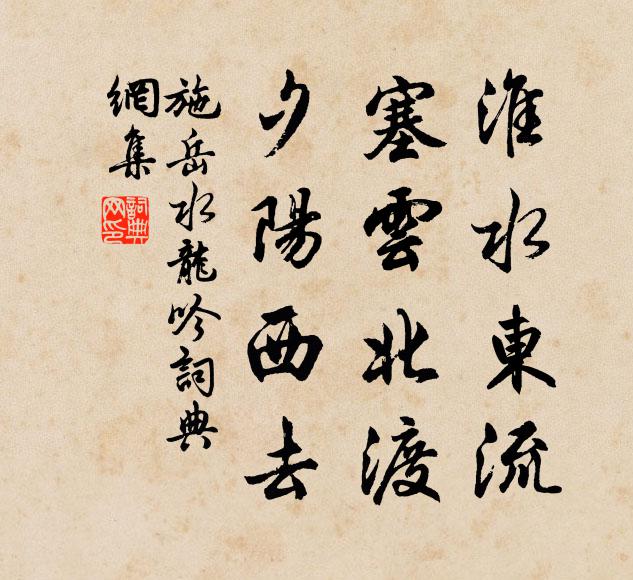 淮水東流
塞雲北渡
夕陽西去
施岳水龍吟詞典
網集
詞典
网印